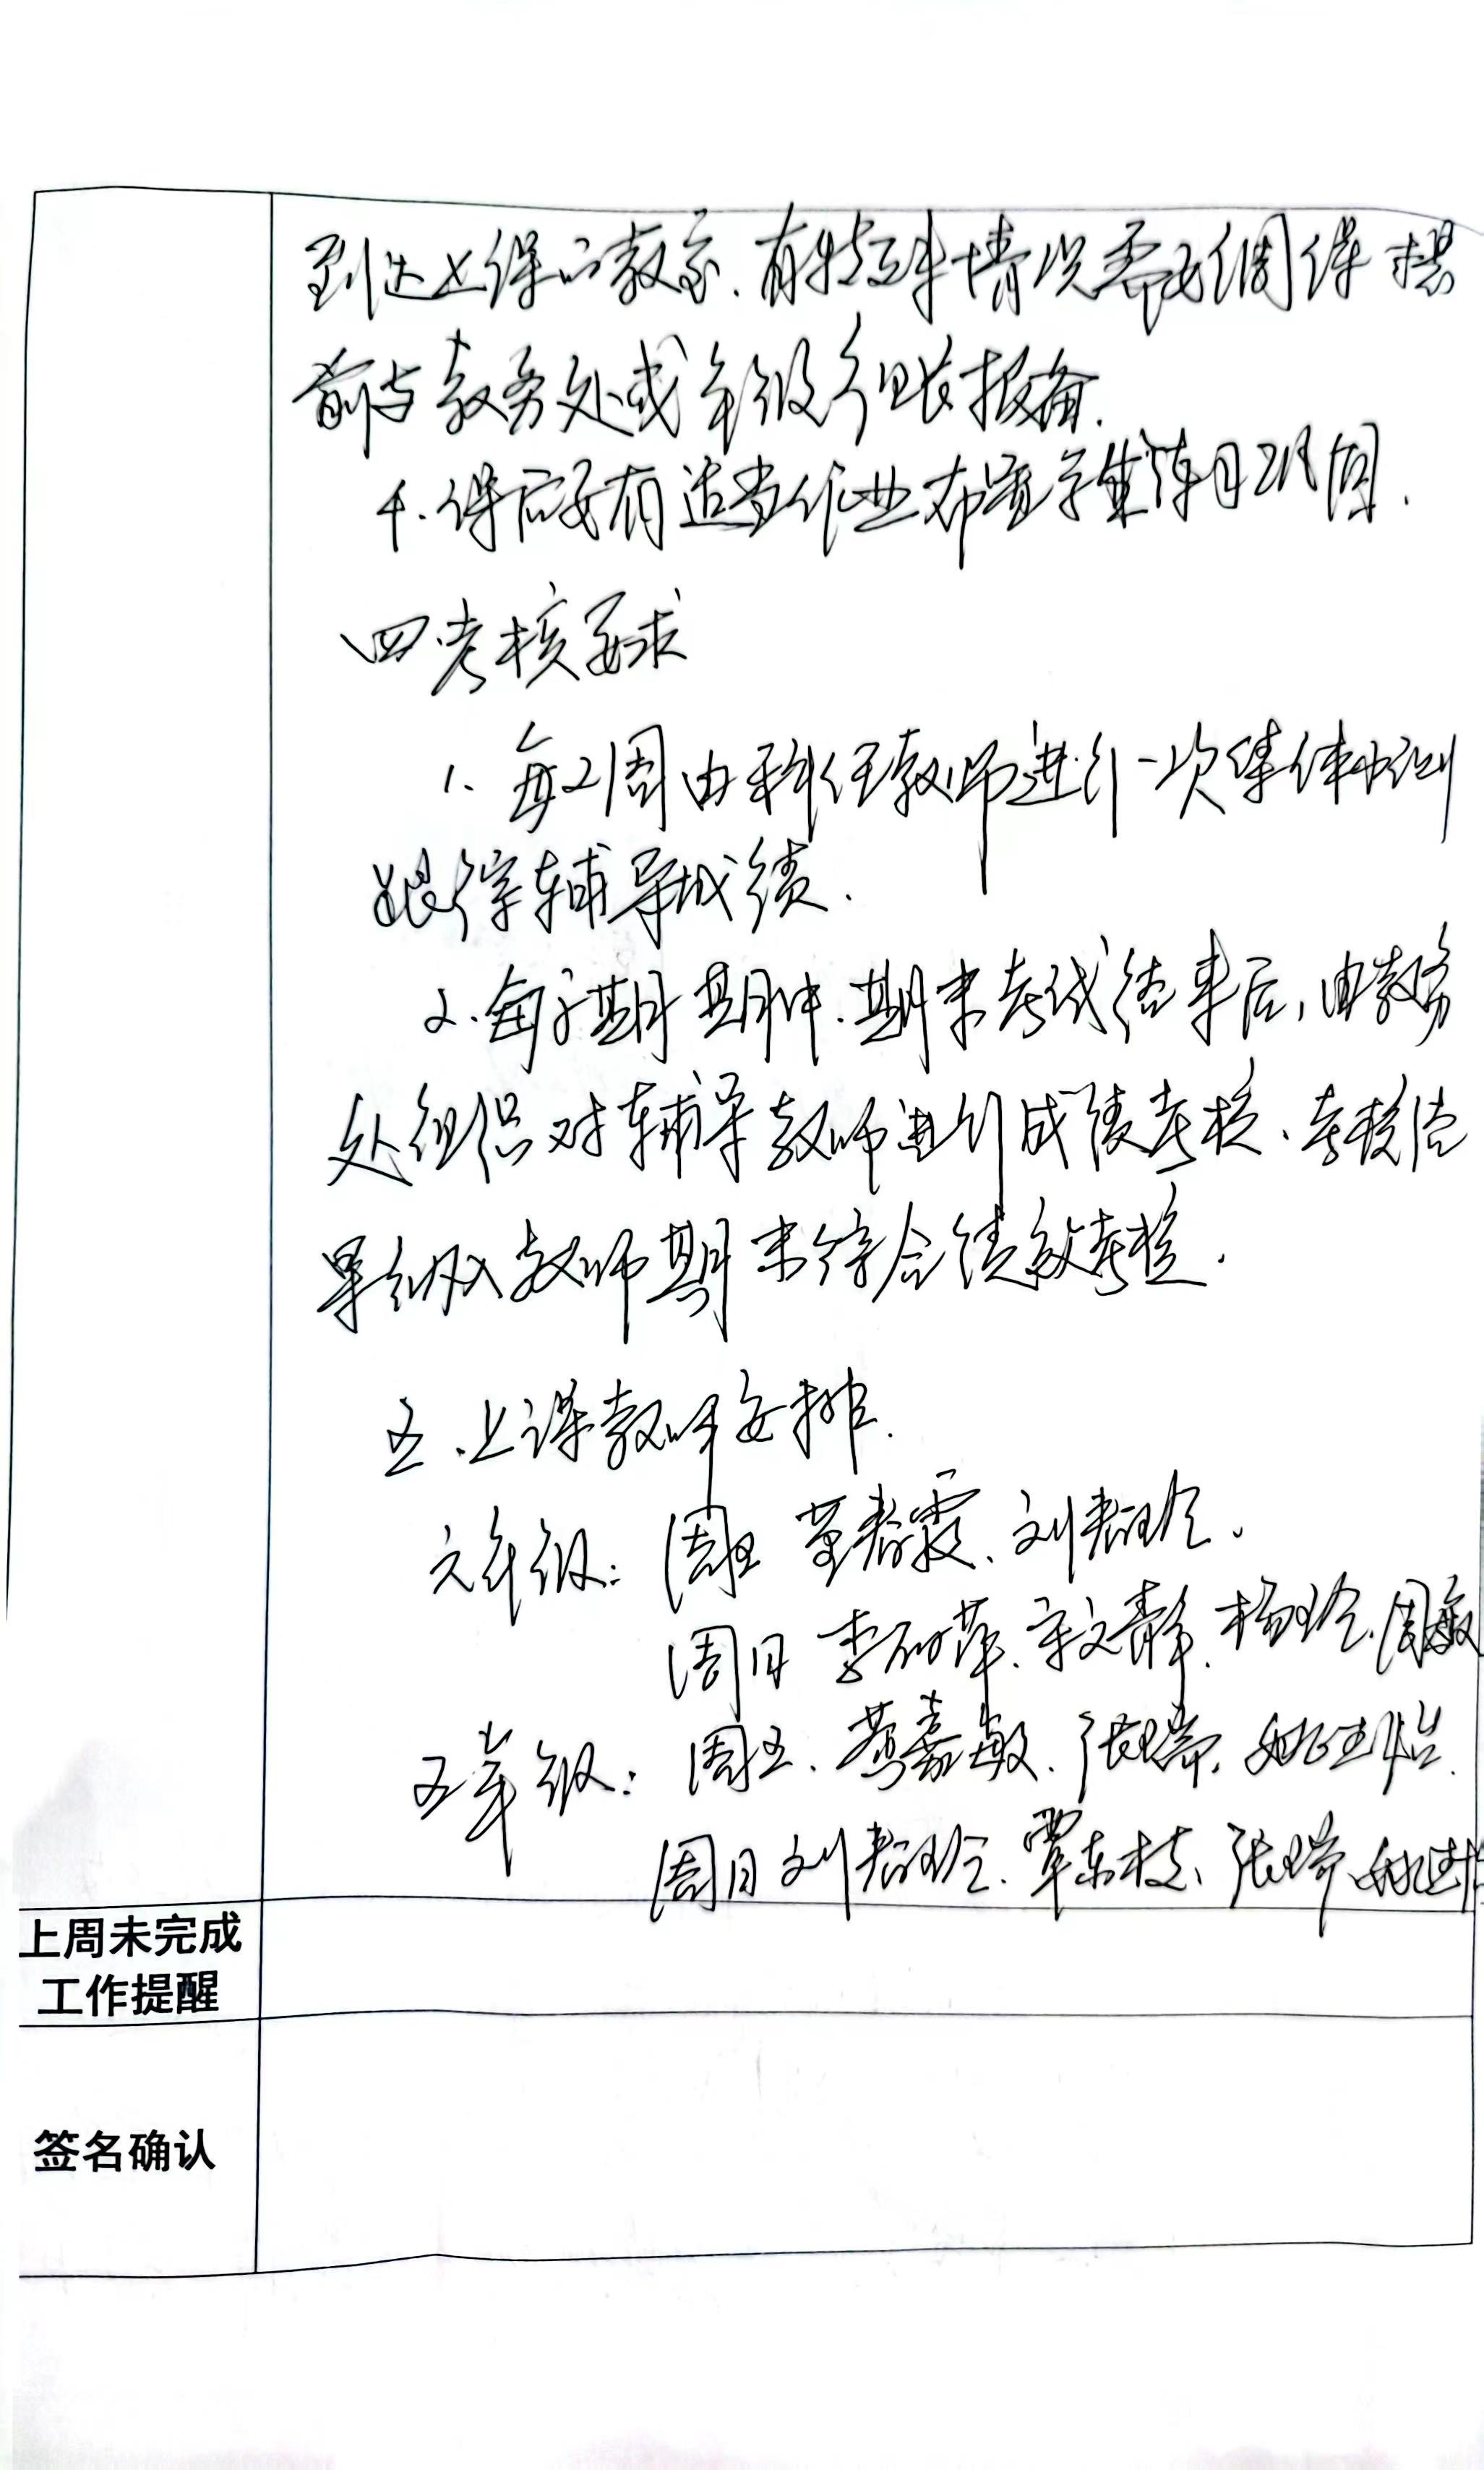 到达上课的教室.有特殊情况需要调课提
前与教务处或年级组长报备.
4.课后要有适当作业布置学生练习巩固.
四.考核要求
1.每2周由科任教师进行一次集体培训
跟踪辅导成绩.
2.每学期期中.期末考试结束后,由教务
处组织对辅导教师进行成绩考核、考核结
果纳入教师期末综合绩效考核.
五.上课教师安排.
六年级:周五 董春霞、刘春玲.
周日 李 萍、宋文静、杨玲、周敏
五年级:周五、蔡嘉敏、张瑞、姚 怡.
周日 刘春玲、覃东枝、张瑞、姚
上周未完成
工作提醒
签名确认